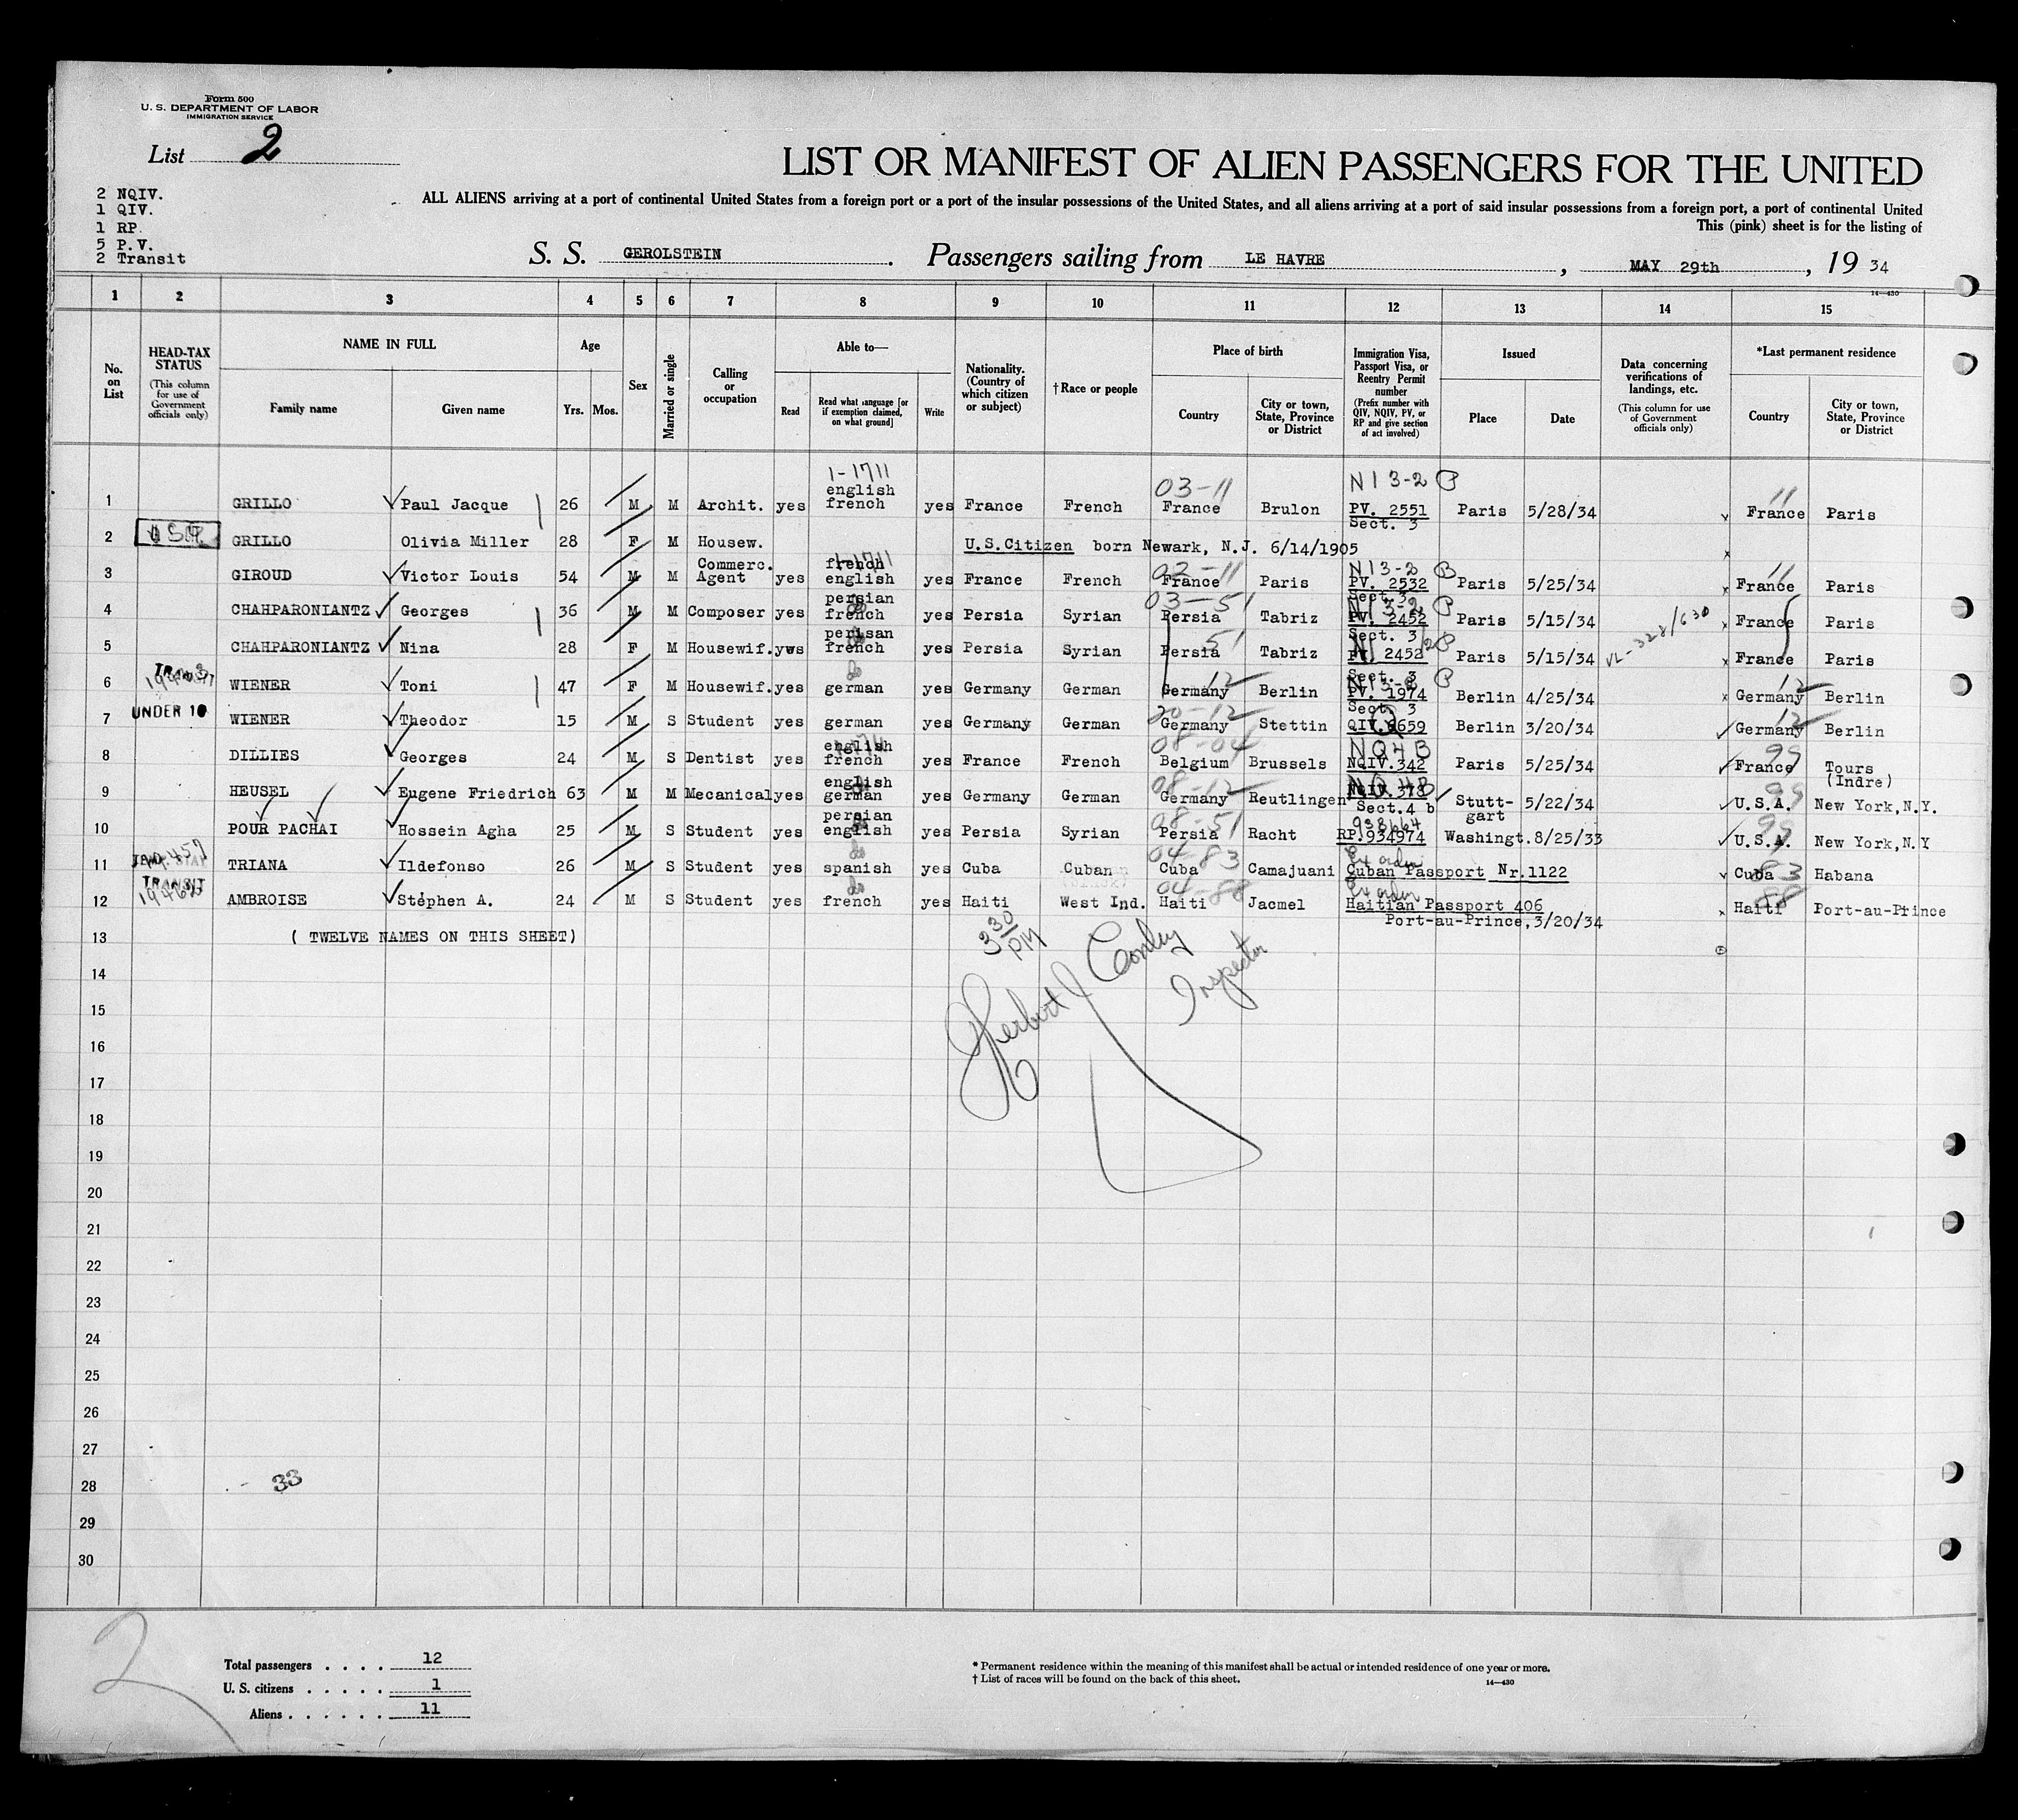 Form 500
U. S. DEPARTMENT OF LABOR
IMMIGRATION SERVICE
List 2
LIST OR MANIFEST OF ALIEN PASSENGERS FOR THE UNITED
2 NQIV.
1 QIV.
1 RP.
5 P.V.
2 Transit
ALL ALIENS arriving at a port of continental United States from a foreign port or a port of the insular possessions of the United States, and all aliens arriving at a port of said insular possessions from a foreign port, a port of continental United
This (pink) sheet is for the listing of
S. S. GEROLSTEIN. Passengers sailing from LE HAVRE, MAY 29th, 19 34
14—430
1 2 3 4 5 6 7 8 9 10 11 12 13 14 15
No. on List
HEAD-TAX STATUS (This column for use of Government officials only)
NAME IN FULL
Family name Given name
Age
Yrs. Mos.
Sex
Married or single
Calling or occupation
Able to—
Read
Read what language [or if exemption claimed, on what ground]
Write
Nationality. (Country of which citizen or subject)
† Race or people
Place of birth
Country
City or town, State, Province or District
Immigration Visa, Passport Visa, or Reentry Permit number (Prefix number with QIV, NQIV, PV, or RP and give section of act involved)
Issued
Place Date
Data concerning verifications of landings, etc. (This column for use of Government officials only)
*Last permanent residence
Country
City or town, State, Province or District
1-1711 03-11 N13-2 P 11
1 GRILLO Paul Jacque 26 M M Archit. yes english french yes France French France Brulon PV. 2551 Sect. 3 Paris 5/28/34 France Paris
2 GRILLO Olivia Miller 28 F M Housew. U.S.Citizen born Newark, N.J. 6/14/1905
3 GIROUD Victor Louis 54 M M Commerc. Agent yes french english yes France French France Paris PV. 2532 Sect. 3 Paris 5/25/34 France Paris
4 CHAHPARONIANTZ Georges 36 M M Composer yes persian french yes Persia Syrian Persia Tabriz PV. 2452 Sect. 3 Paris 5/15/34 France Paris
5 CHAHPARONIANTZ Nina 28 F M Housewif. yws perisan french yes Persia Syrian Persia Tabriz PV. 2452 Sect. 3 Paris 5/15/34 VL-328/630 France Paris
6 TRANSIT WIENER Toni 47 F M Housewif. yes german yes Germany German Germany Berlin PV. 1974 Sect. 3 Berlin 4/25/34 Germany Berlin
7 UNDER 16 WIENER Theodor 15 M S Student yes german yes Germany German Germany Stettin QIV.6659 Berlin 3/20/34 Germany Berlin
8 DILLIES Georges 24 M S Dentist yes english french yes France French Belgium Brussels NQIV.342 Paris 5/25/34 France Tours (Indre)
9 HEUSEL Eugene Friedrich 63 M M Mecanical yes english german yes Germany German Germany Reutlingen NQIV.378 Sect.4 b Stutt-gart 5/22/34 U.S.A. New York,N.Y.
10 POUR PACHAI Hossein Agha 25 M S Student yes persian english yes Persia Syrian Persia Racht 938664 RP.934974 Washingt. 8/25/33 U.S.A. New York,N.Y
11 TRIANA Ildefonso 26 M S Student yes spanish yes Cuba Cuban Cuba Camajuani Ex order Cuban Passport Nr.1122 Cuba Habana
12 TRANSIT AMBROISE Stéphen A. 24 M S Student yes french yes Haiti West Ind. Haiti Jacmel Ex order Haitian Passport 406 Port-au-Prince,3/20/34 Haiti Port-au-Prince
13 ( TWELVE NAMES ON THIS SHEET)
3 30 PM
Herbert J Conley
Inspector
14
15
16
17
18
19
20
21
22
23
24
25
26
27
28 33
29
30
2
Total passengers . . . . 12
U. S. citizens . . . . . 1
Aliens . . . . . . 11
* Permanent residence within the meaning of this manifest shall be actual or intended residence of one year or more.
† List of races will be found on the back of this sheet.
14—430